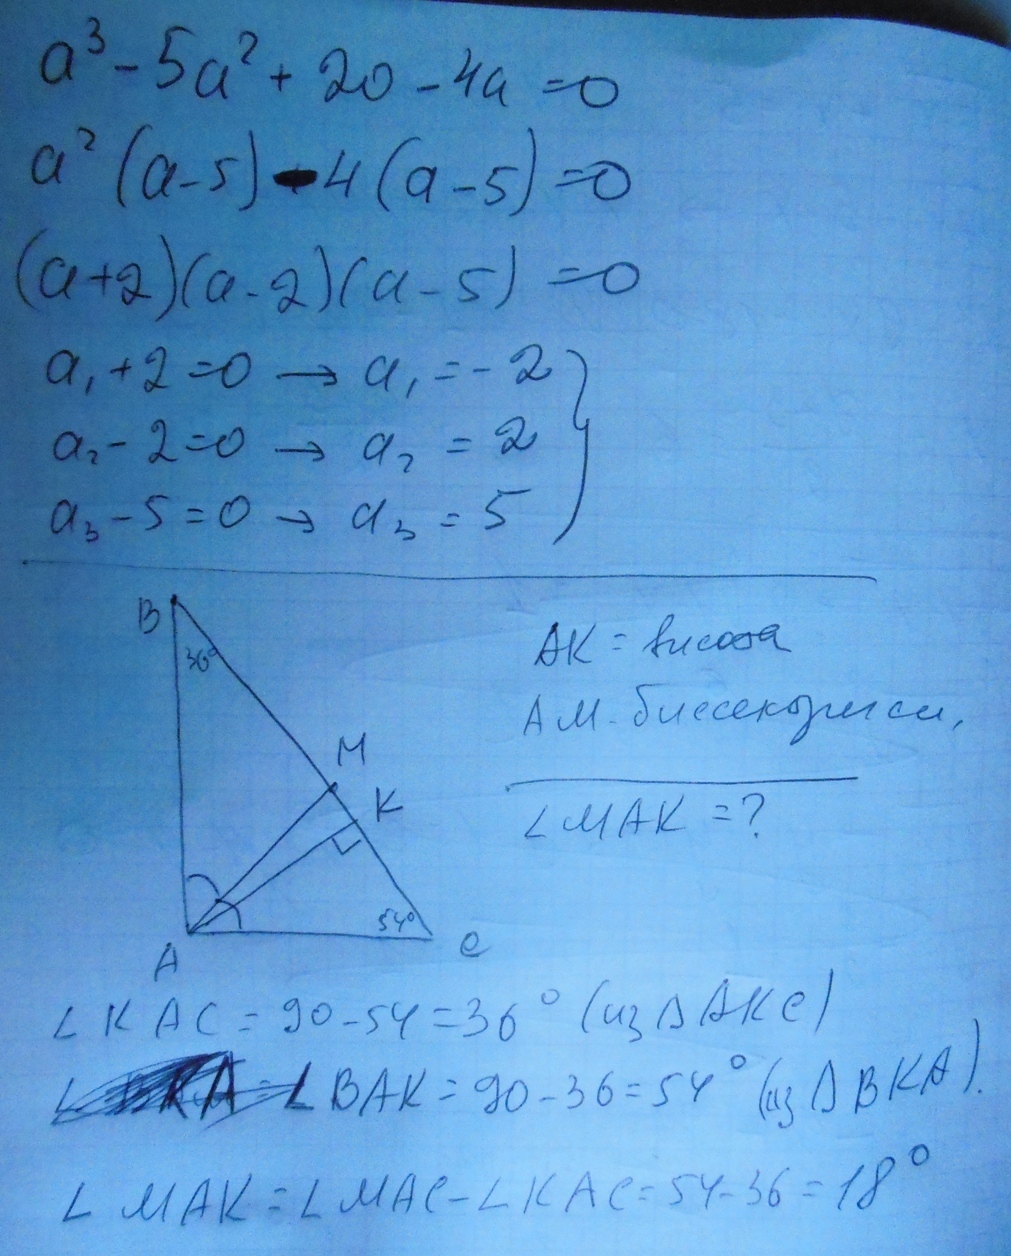 a³ - 5a² + 20 - 4a = 0
a² (a - 5) - 4 (a - 5) = 0
(a + 2)(a - 2)(a - 5) = 0
a₁ + 2 = 0 → a₁ = - 2
a₂ - 2 = 0 → a₂ = 2
a₃ - 5 = 0 → a₃ = 5
B
36°
M
K
54°
A
C
AK = висота
AM - биссектриса,
∠MAK = ?
∠KAC = 90 - 54 = 36° (из ΔAKC)
∠BAK = 90 - 36 = 54° (из ΔBKA).
∠MAK = ∠MAC - ∠KAC = 54 - 36 = 18°